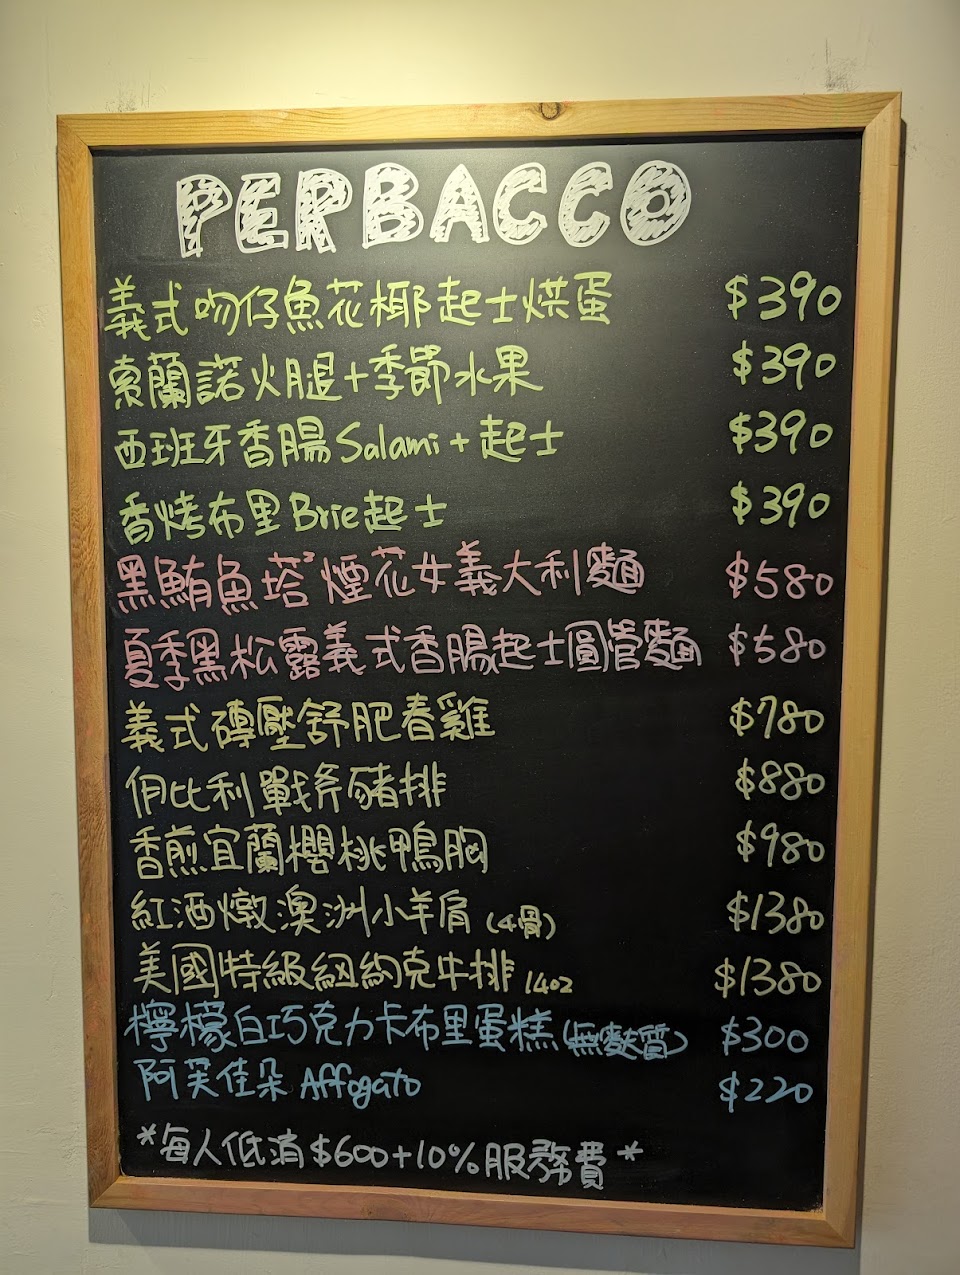 PERBACCO
義式吻仔魚花椰起士烘蛋 $390
索蘭諾火腿+季節水果 $390
西班牙香腸Salami+起士 $390
香烤布里Brie起士 $390
黑鮪魚塔煙花女義大利麵 $580
夏季黑松露義式香腸起士圓管麵 $580
義式磚壓舒肥春雞 $780
伊比利戰斧豬排 $880
香煎宜蘭櫻桃鴨胸 $980
紅酒燉澳洲小羊肩(4骨) $1380
美國特級紐約克牛排 14oz $1380
檸檬白巧克力卡布里蛋糕(無麩質) $300
阿芙佳朵 Affogato $220
*每人低消$600+10%服務費*